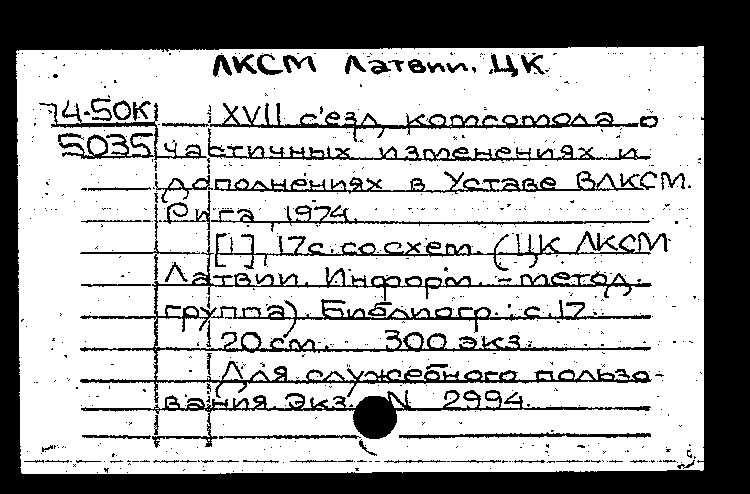 ЛКСМ Латвии. ЦК
74-50К XVII съезд комсомола о
5035 частичных изменениях и
дополнениях в Уставе ВЛКСМ.
Рига, 1974.
[1], 17с. со схем. (ЦК ЛКСМ
Латвии. Информ.-метод.
группа). Библиогр.: с.17.
20 см. 300 экз.
Для служебного пользо-
вания. Экз. N 2994.